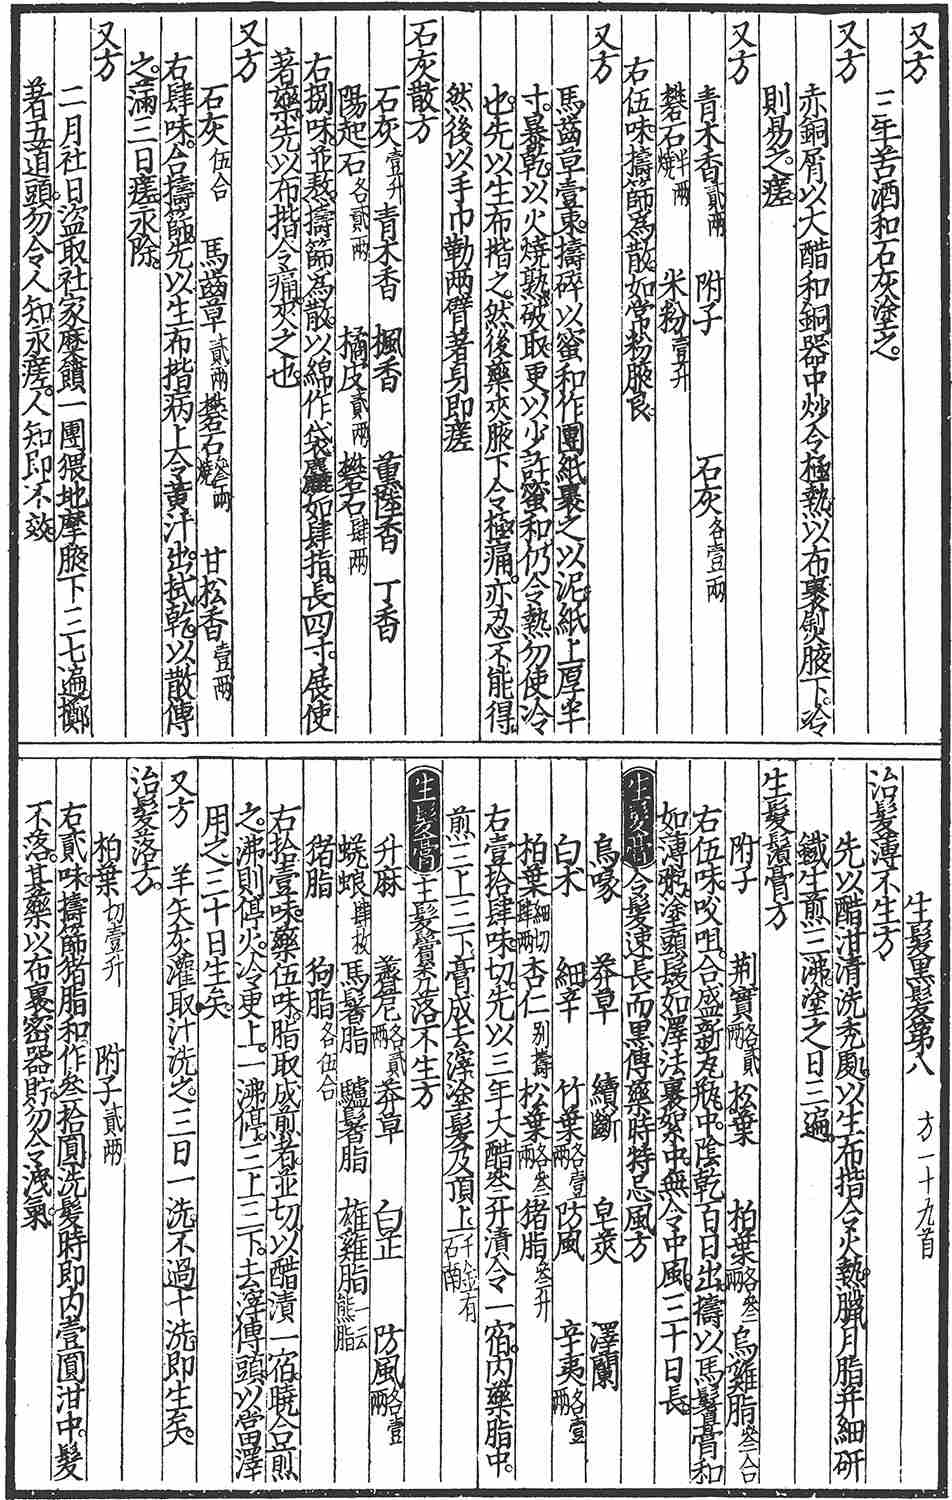 又方
三年苦酒和石灰塗之。
又方
赤銅屑以大醋和銅器中炒令極熱以布裹熨腋下。冷
則易之。瘥。
又方
青木香貳兩　附子　石灰各壹兩
礬石半兩燒　米粉壹升
右伍味。擣篩為散。如常粉腋良。
又方
馬齒草壹束。擣碎以蜜和作團紙裹之以泥紙上厚半
寸。暴乾。以火燒熟破取更以少許蜜和仍令熱勿使冷
也。先以生布揩之。然後藥夾腋下令極痛。亦忍不能得。
然後以手巾勒兩臂著身即瘥
石灰散方
石灰壹升　青木香　楓香　薰陸香　丁香
陽起石各貳兩　橘皮貳兩　礬石肆兩
右捌味。並熬擣篩為散。以綿作袋麤如肆指。長四寸。展使
著藥。先以布揩令痛夾之也。
又方
石灰伍合　馬齒草貳兩　礬石叁兩燒　甘松香壹兩
右肆味。合擣篩先以生布揩病上令黃汗出。拭乾。以散傅
之。滿三日瘥永除。
又方
二月社日盜取社家糜饋一團猥地摩腋下三七遍擲
著五道頭。勿令人知永瘥。人知即不效。
生髮黑髮第八　方一十九首
治髮薄不生方
先以醋泔清洗禿處。以生布揩令火熱。臘月脂并細研
鐵生煎三沸。塗之日三遍。
生髮鬚膏方
附子　荊實各貳兩　松葉　柏葉各叁兩　烏雞脂叁合
右伍味。㕮咀。合盛新瓦瓶中。陰乾百日出。擣以馬鬐膏和
如薄粥。塗頭髮如澤法裹絮中無令中風。三十日長。
生髮膏　令髮速長而黑傅藥時特忌風方
烏喙　莽草　續斷　皂莢　澤蘭
白朮　細辛　竹葉各壹兩　防風　辛夷各壹兩
柏葉細切肆兩　杏仁別擣　松葉各叁兩　猪脂叁升
右壹拾肆味。切。先以三年大醋叁升漬令一宿。內藥脂中。
煎三上三下。膏成去滓塗髮及頂上。千金有石南
生髮膏　主髮鬢禿落不生方
升麻　薺苨各貳兩　莽草　白芷　防風各壹兩
蜣蜋肆枚　馬鬐脂　驢鬐脂　雄雞脂一云熊脂
猪脂　狗脂各伍合
右拾壹味。藥伍味。脂取成煎者。並切。以醋漬一宿。曉合煎
之。沸則停火。冷更上。一沸停。三上三下。去滓傅頭。以當澤
用之。三十日生矣。
又方　羊矢灰灌取汁洗之。三日一洗。不過十洗即生矣。
治髮落方。
柏葉切壹升　附子貳兩
右貳味。擣篩猪脂和作叁拾圓洗髮時即內壹圓泔中。髮
不落。其藥以布裹密器貯。勿令洩氣。